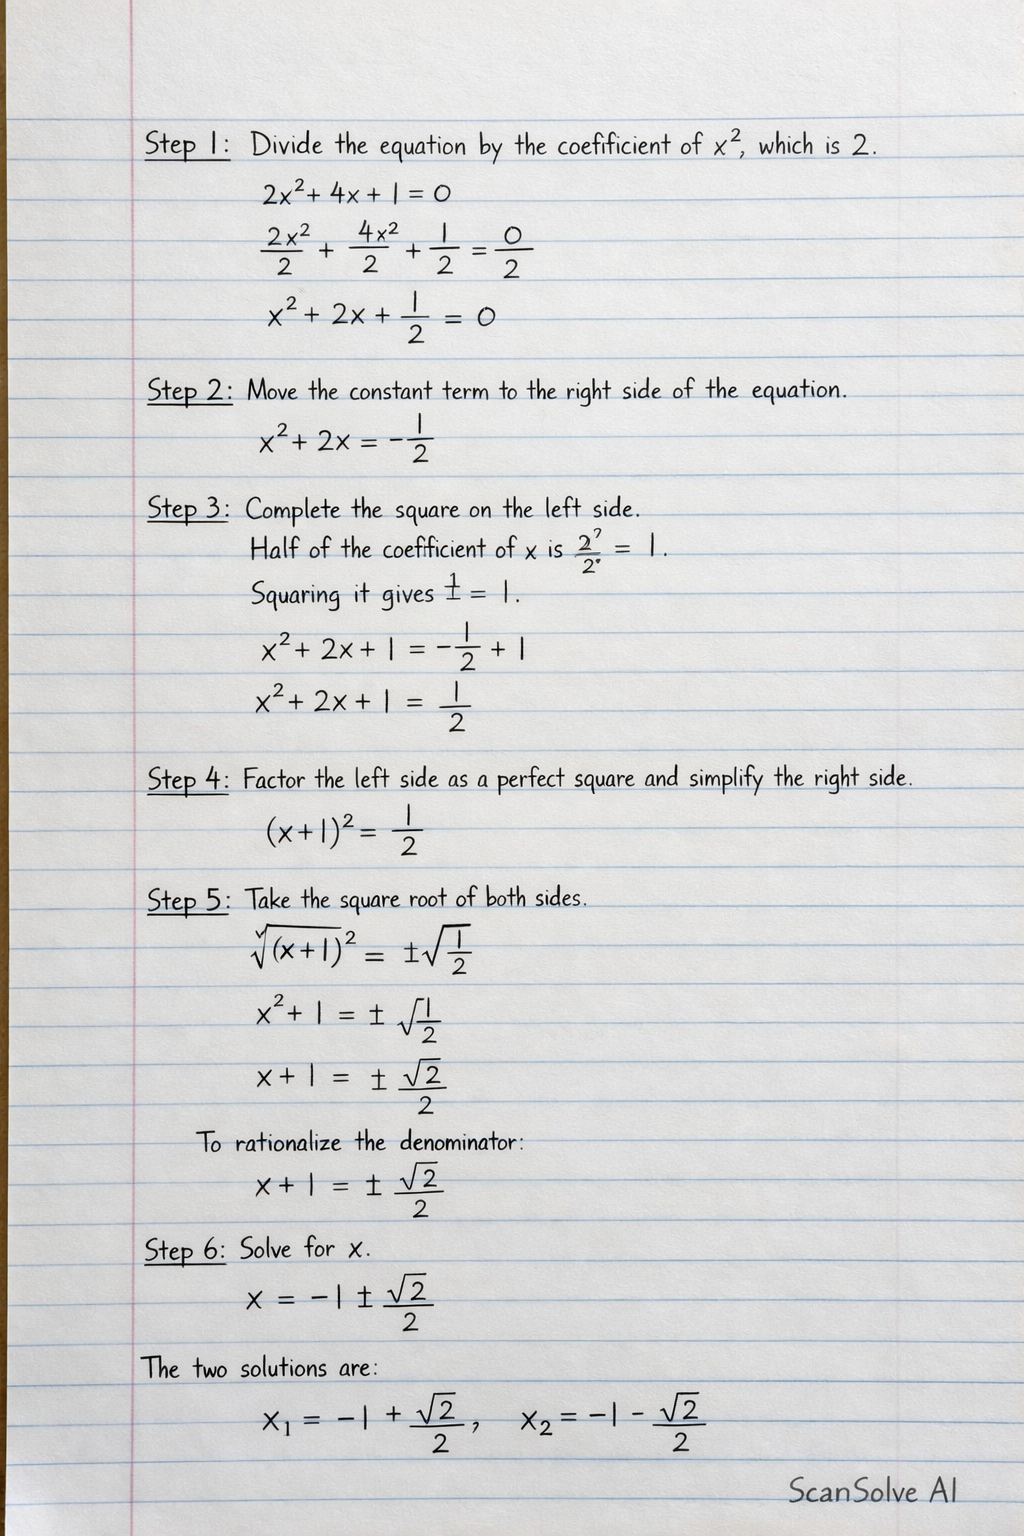 Step 1: Divide the equation by the coefificient of x², which is 2.
2x² + 4x + 1 = 0
2x²/2 + 4x²/2 + 1/2 = 0/2
x² + 2x + 1/2 = 0
Step 2: Move the constant term to the right side of the equation.
x² + 2x = -1/2
Step 3: Complete the square on the left side.
Half of the coefficient of x is 2?/2. = 1.
Squaring it gives = 1.
x² + 2x + 1 = -1/2 + 1
x² + 2x + 1 = 1/2
Step 4: Factor the left side as a perfect square and simplify the right side.
(x+1)² = 1/2
Step 5: Take the square root of both sides.
√(x+1)² = ±√1/2
x² + 1 = ± √1/2
x + 1 = ± √2/2
To rationalize the denominator:
x + 1 = ± √2/2
Step 6: Solve for x.
x = -1 ± √2/2
The two solutions are:
x₁ = -1 + √2/2, x₂ = -1 - √2/2
ScanSolve AI